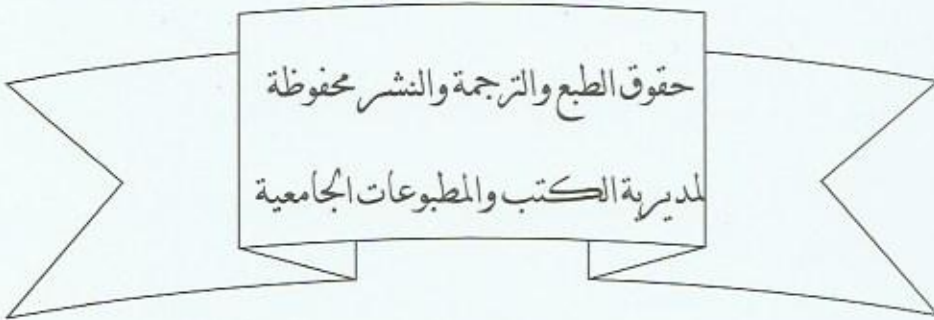 حقوق الطبع والترجمة والنشر محفوظة
لمديرية الكتب والمطبوعات الجامعية